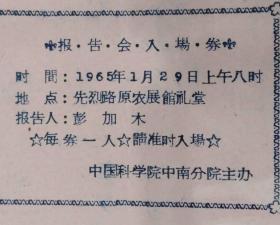 报·告·会·入·場·券
时 間：1965年1月29日上午八时
地 点：先烈路原农展館礼堂
报告人：彭 加 木
☆每券一人☆請准时入場☆
中国科学院中南分院主办